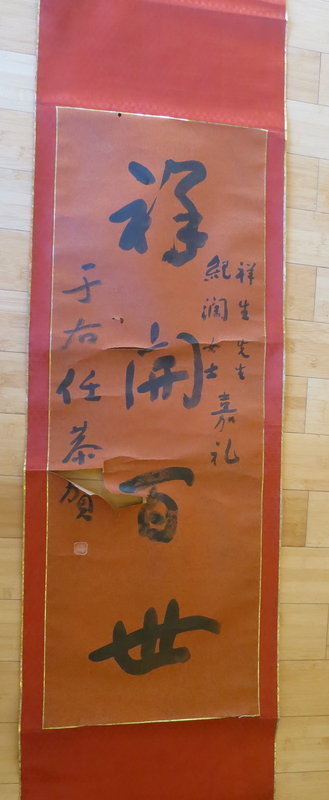 祥生先生
紀澜女士 嘉礼
祥開百世
于右任恭賀